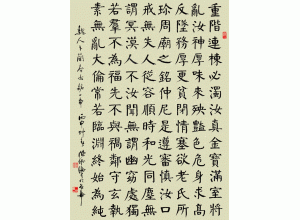 重階連棟必濁汝真金寶滿室將
亂汝神厚味來殃豔色危身求高
反墜務厚更貧閉情塞欲老氏所
珍周廟之銘仲尼是遵審慎汝口
戒無失人從容順時和光同塵無
謂冥漠人不汝聞無謂幽窈處獨
若羣不為福先不與禍鄰守玄執
素無亂大倫常若臨淵終始為純